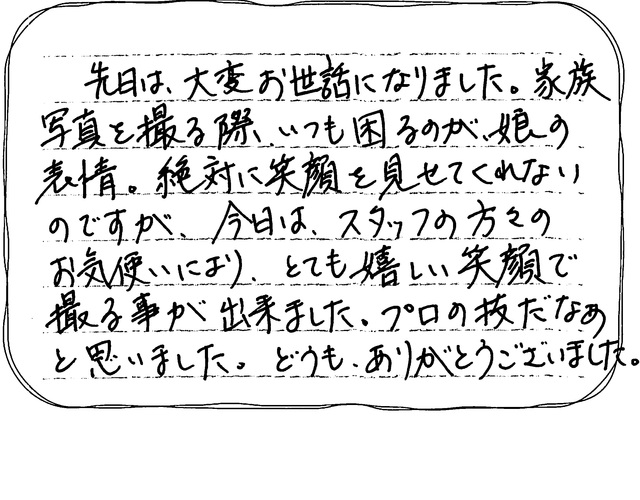 先日は、大変お世話になりました。家族
写真を撮る際、いつも困るのが、娘の
表情。絶対に笑顔を見せてくれない
のですが、今日は、スタッフの方々の
お気使いにより、とても嬉しい笑顔で
撮る事が出来ました。プロの技だなぁ
と思いました。どうも、ありがとうございました。